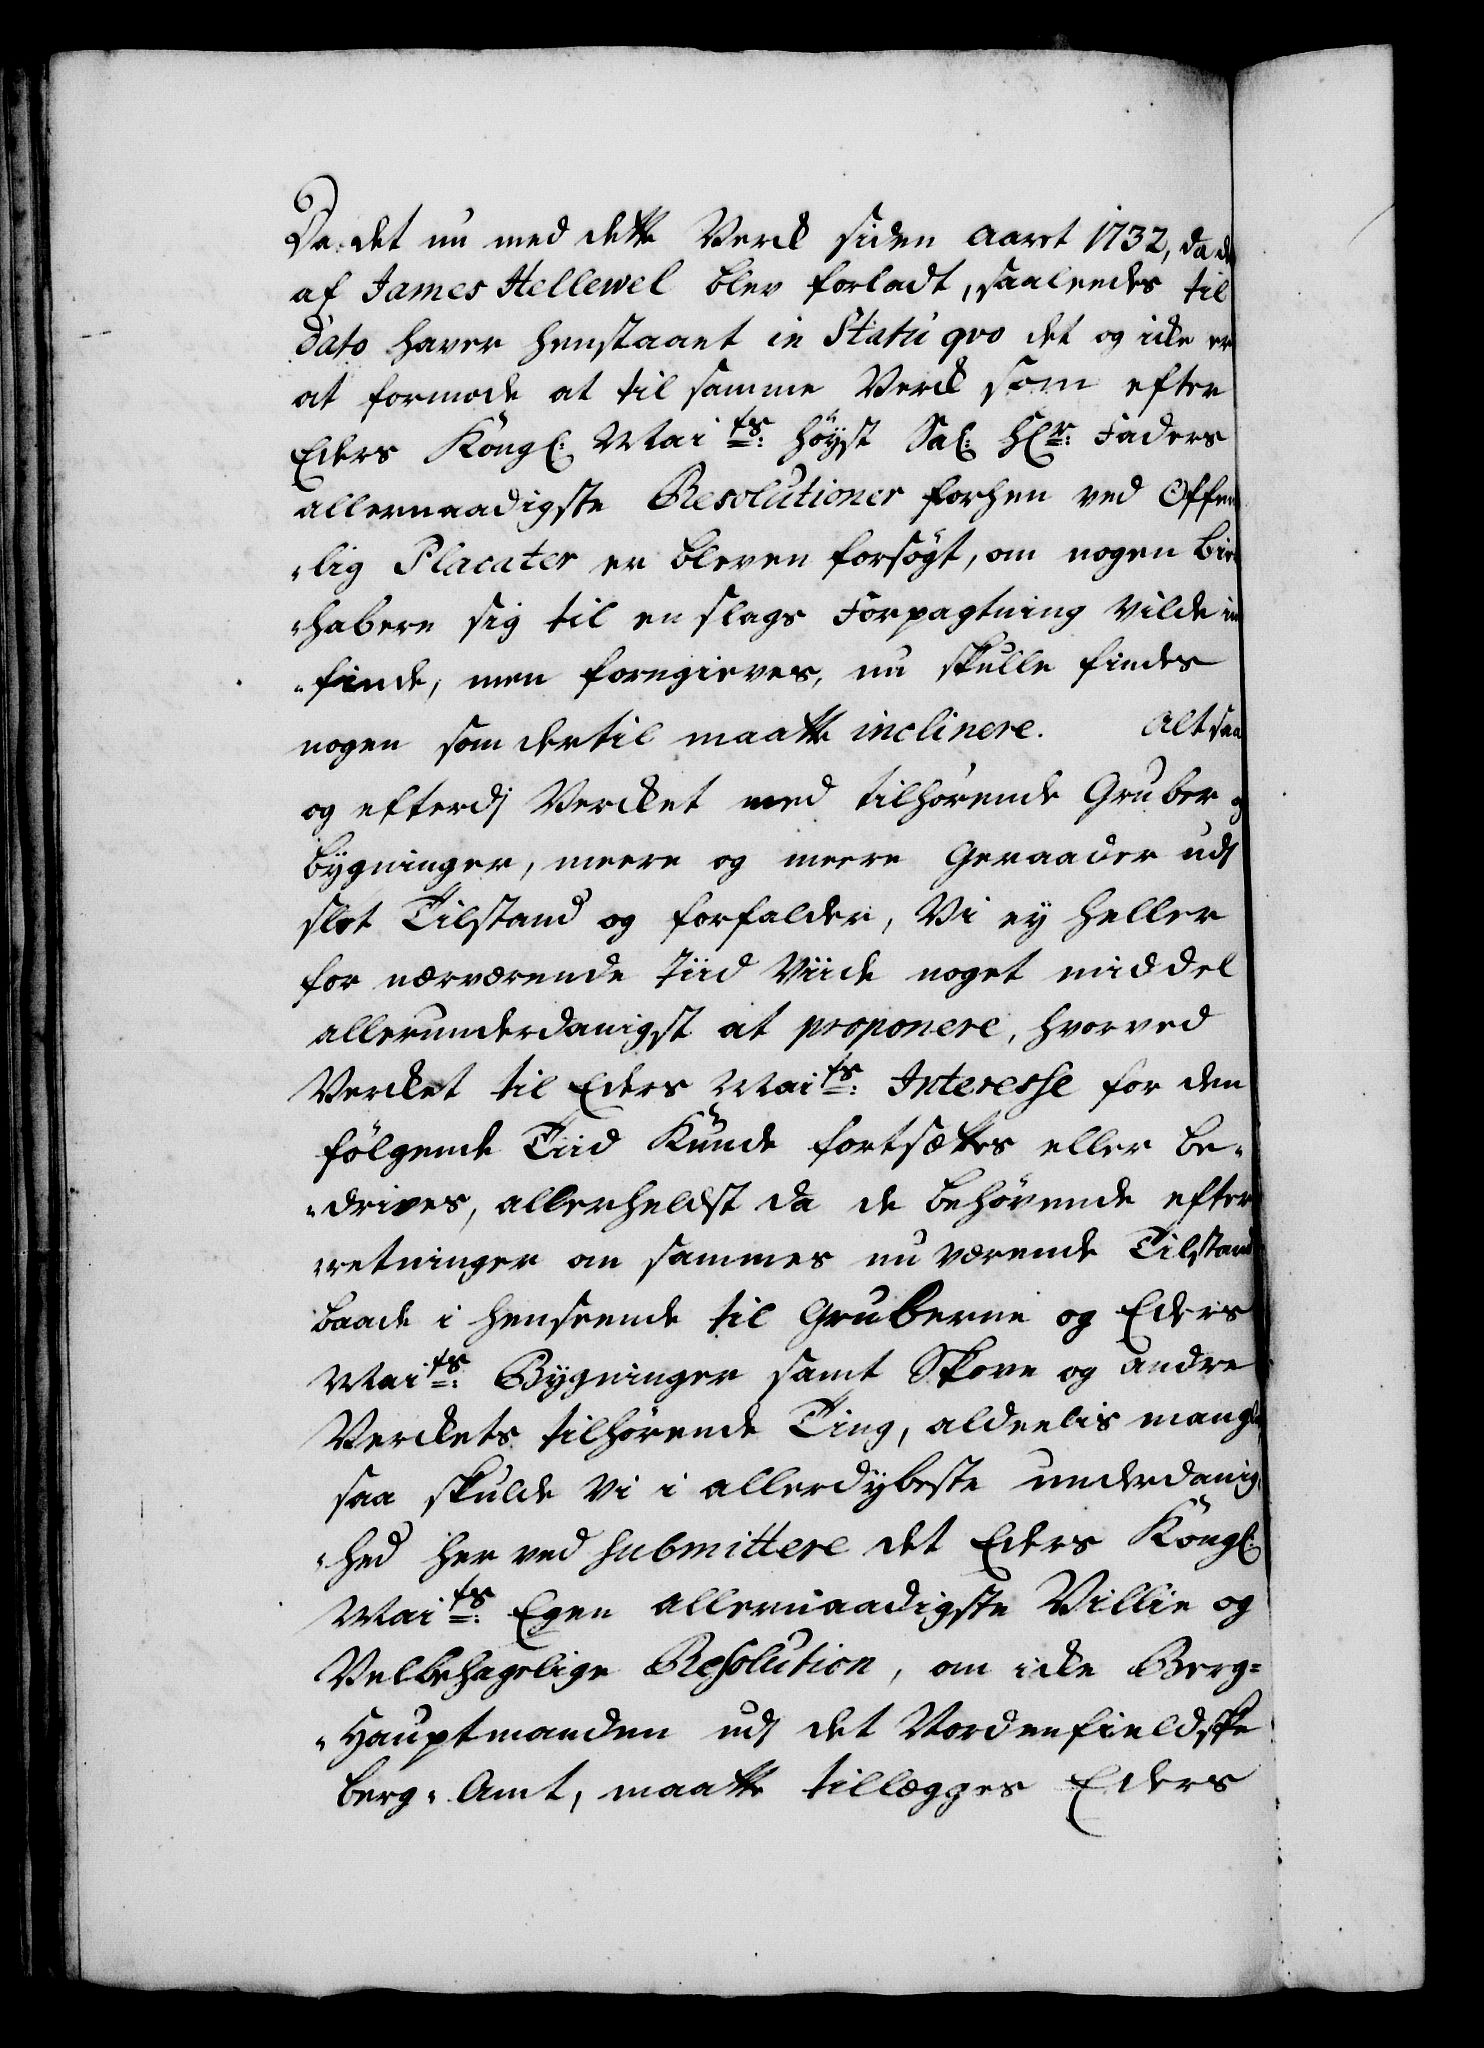 Da det nu med dette Verck siden Aaret 1732, da de
af James Hellewel blev forladt, saaleedes til
Dato haver henstaaet in Statu qvo det og icke er
at formode at til samme Verck som efter
Eders Kongl: Mai ts: høyst Sal: Hr: Faders
allernaadigste Resolutioner forhen ved Offen
"lig Placater er bleven forsøgt, om nogen Lie
"habere sig til en slags Forpagtning vilde in
"finde, men forgieves, nu skulle findes
nogen som dertil maatte inclinere. Alt saa
og efterdj Vercket med tilhørende Gruber og
bygninger, meere og meere Geraader udj
slet Tilstand og forfalder, Vi ey heller
for nærværende Tiid Viide noget middel
allerunderdanigst at proponere, hvorved
Vercket til Eders Maits: Interesse for den
følgende Tiid Kunde fortsættes eller be-
"drives, allerheldst da de behøvende efter
"retninger om sammes nu værende Tilstand
baade i henseende til Gruberne og Eders
Maits: Bygninger samt Skove og andre
Verckets tilhørende Ting, aldeelis mangle
saa skulde Vi i allerdybeste underdanig,
"hed her ved submittere det Eders Kongl:
Maits: Egen allernaadigste Villie og
Velbehagelige Resolution, om icke Berg=
"Hauptmanden udj det Nordenfieldske
berg- Amt, maatte tillægges Eders